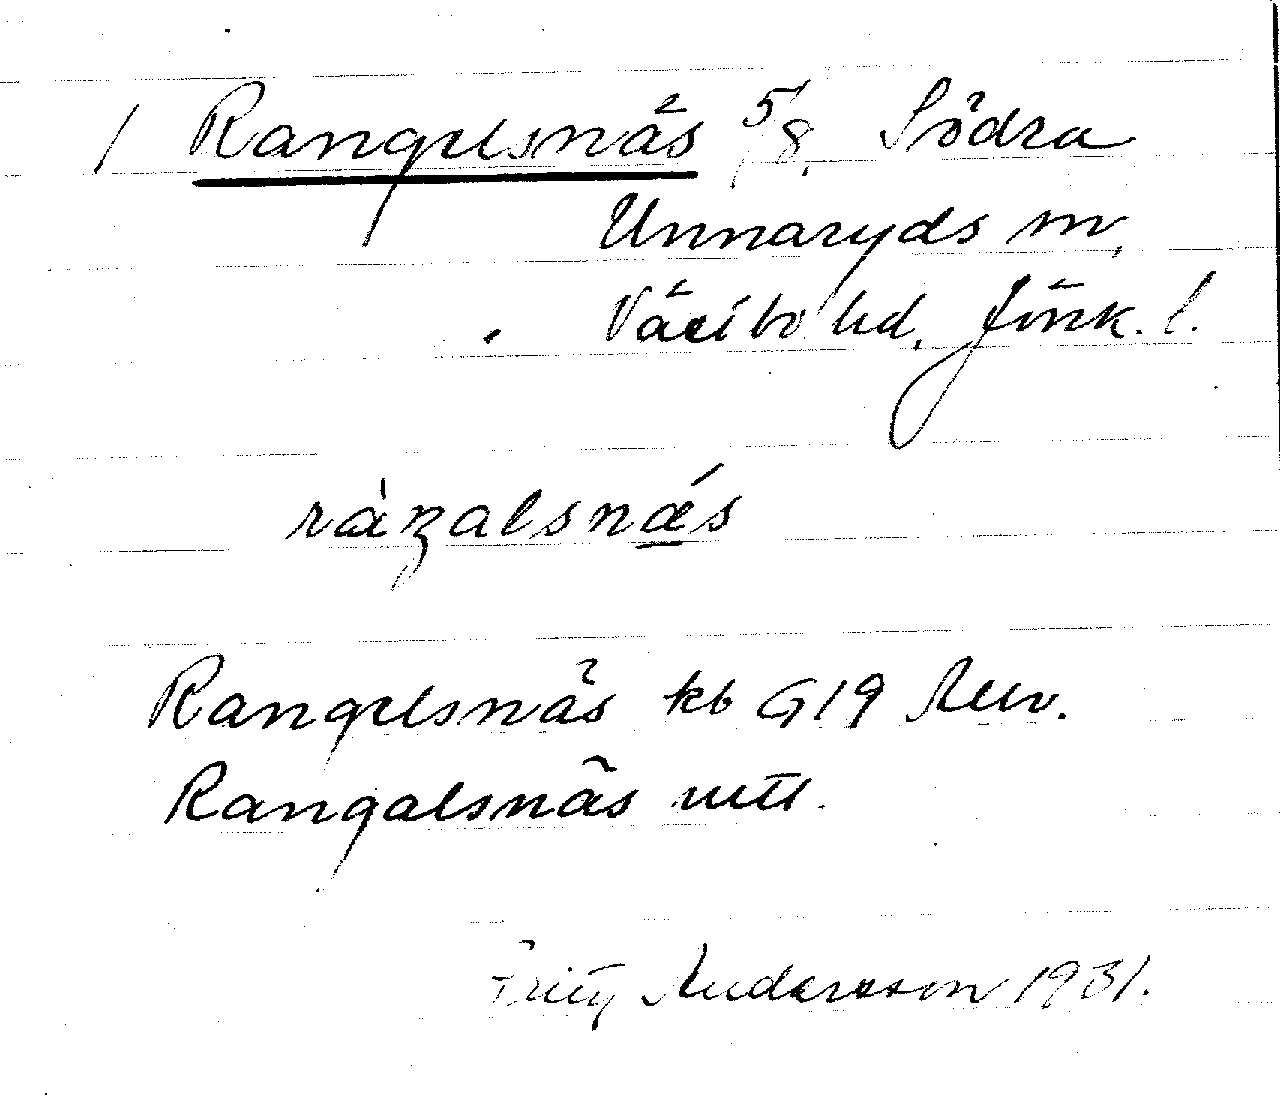 1 Rangelsnäs 5/8 Södra
Unnaryds sn,
Västbo hd. Jönk. l.
ràŋalsnǽs
Rangelsnäs kb G19 Rev.
Rangalsnäs utt.
Fritz Andersson 1931.